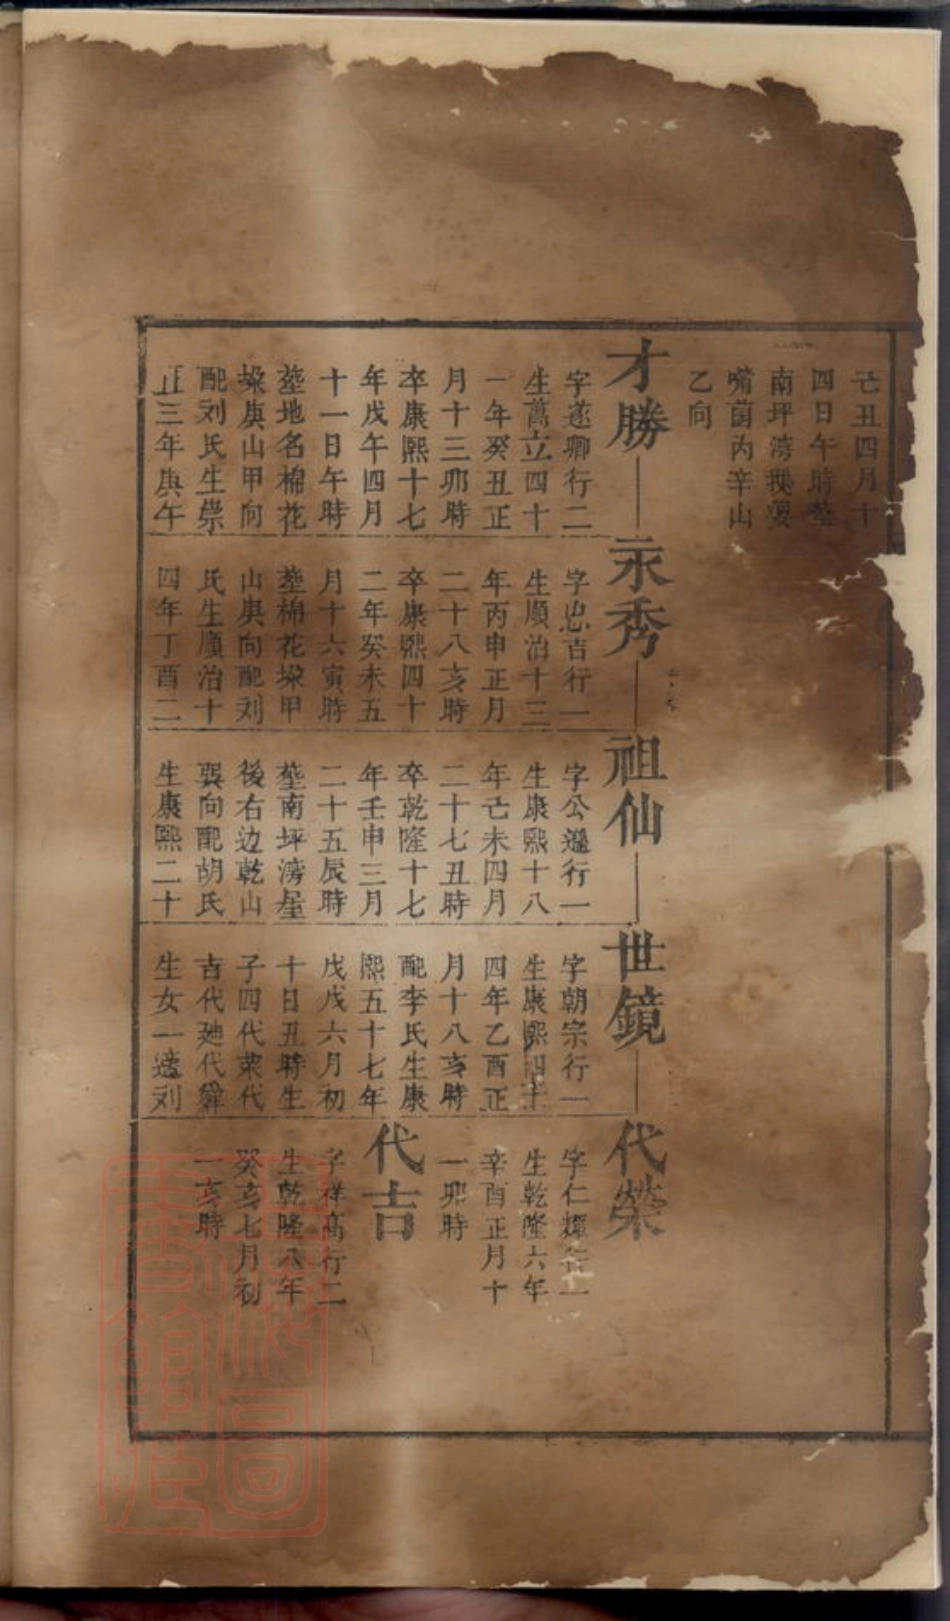 己丑四月十
四日午時塟
南坪湾
嘴菌丙辛山
乙向
才勝
字遂卿行二
生萬立四十
一年癸丑正
月十三卯時
卒康熙十七
年戊午四月
十一日午時
塟地名棉花
垜庚山甲向
配刘氏生崇
正三年庚午
永秀
字忠吉行一
生順治十三
年丙申正月
二十八亥時
卒康熙四十
二年癸未五
月十六寅時
塟棉花垜甲
山庚向配刘
氏生順治十
四年丁酉二
祖仙
字公遜行一
生康熙十八
年己未四月
二十七丑時
卒乾隆十七
年壬申三月
二十五辰時
塟南坪湾屋
後右边乾山
巽向配胡氏
生康熙二十
世鏡
字朝宗行一
生康熙四十
四年乙酉正
月十八亥時
配李氏生康
熙五十七年
戊戌六月初
十日丑時生
子四代荣代
吉代廸代
生女一適刘
代榮
字仁輝行一
生乾隆六年
辛酉正月十
一卯時
代吉
字祥高行二
生乾隆八年
癸亥七月初
一亥時